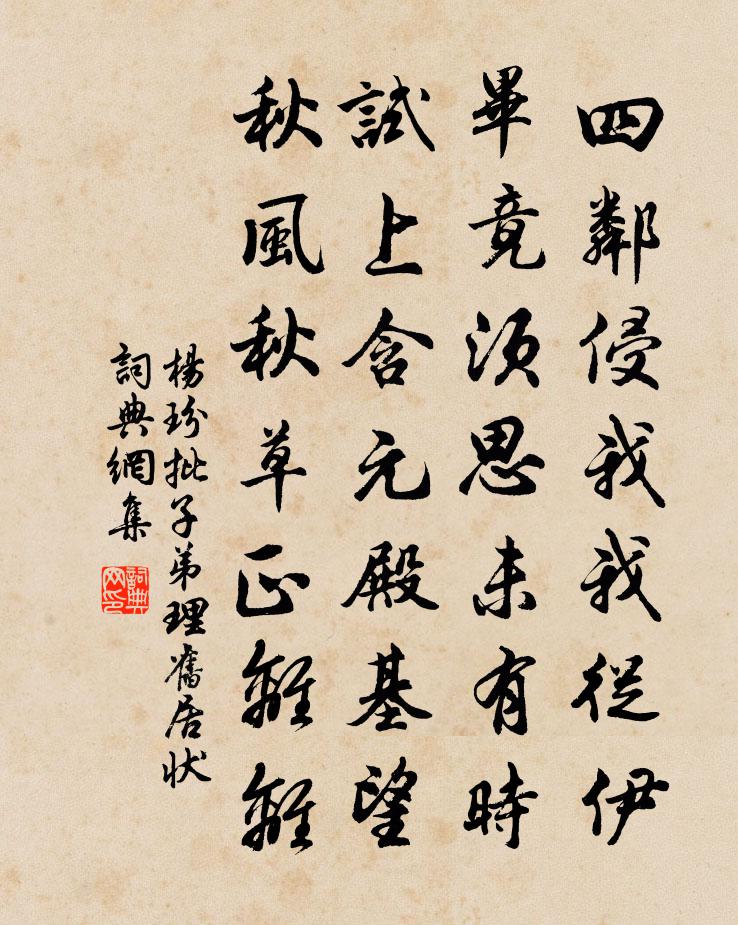 四鄰侵我我從伊
畢竟須思未有時
試上含元殿基望
秋風秋草正離離
楊玢批子弟理舊居狀
詞典網集
詞典网印